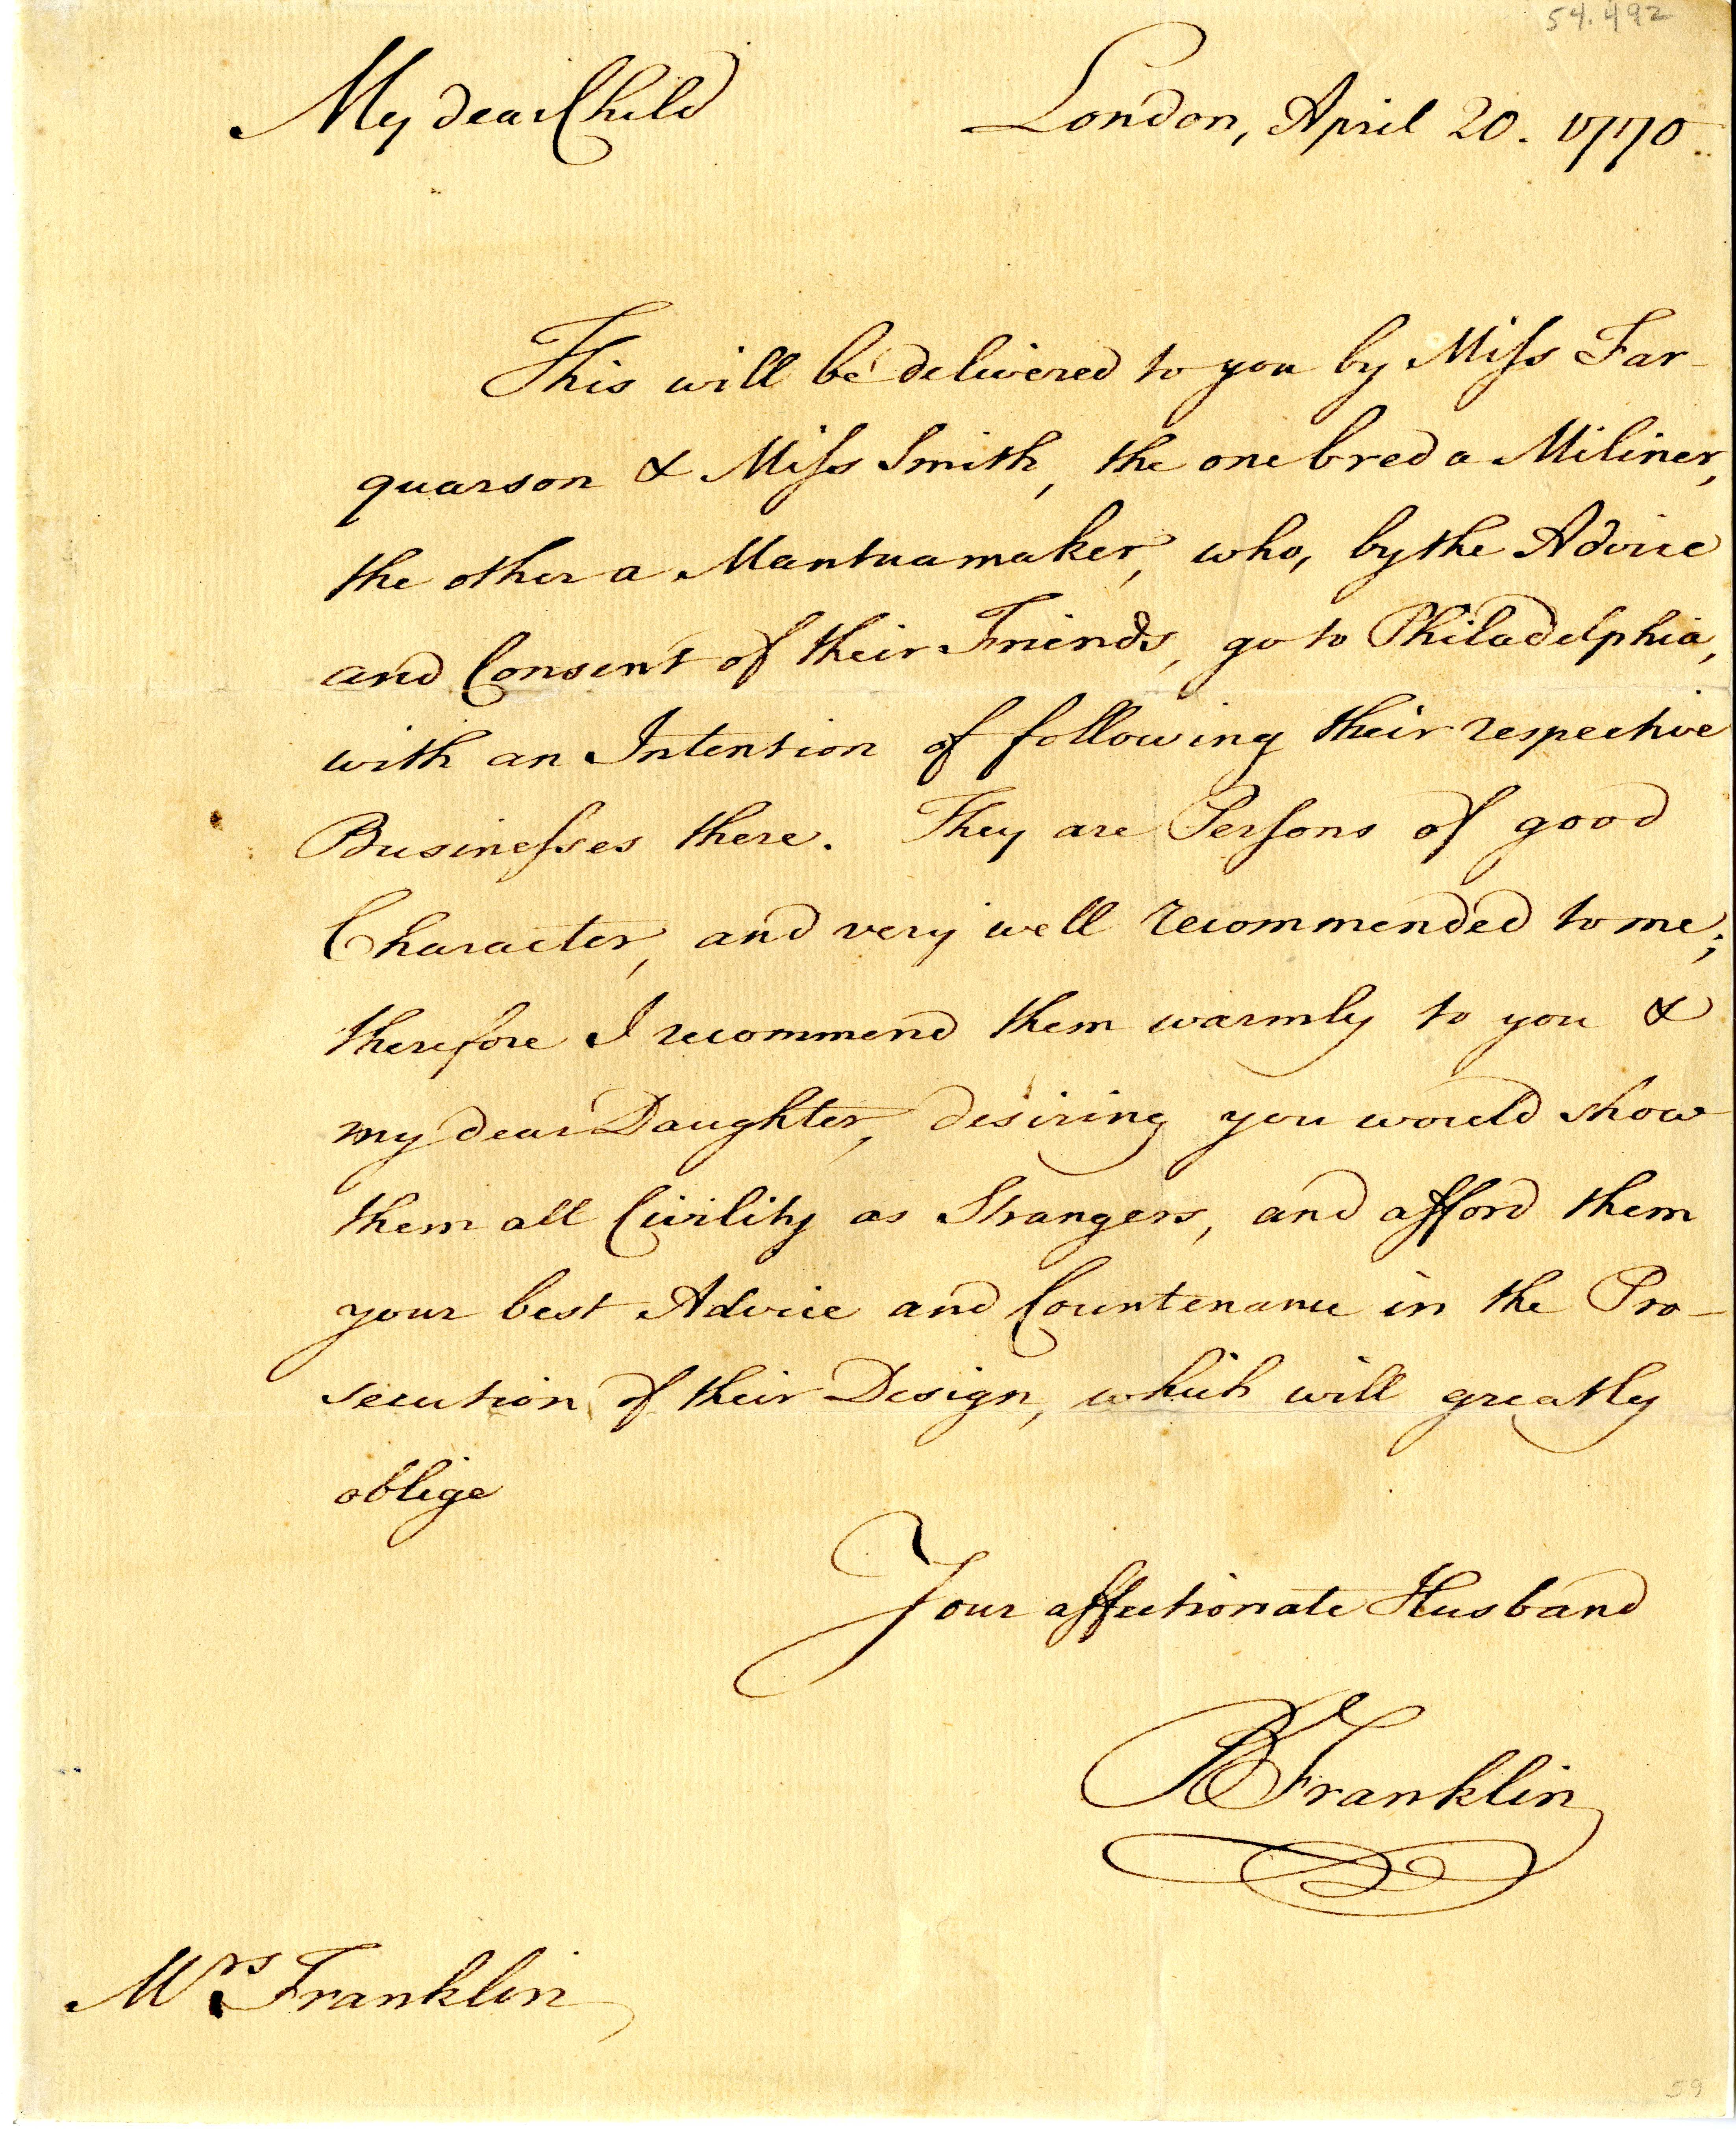 54.492
My dear Child
London, April 20. 1770.
This will be delivered to you by Miſs Far-
quarson & Miſs Smith, the one bred a Miliner,
the other a Mantuamaker, who, by the Advice
and Consent of their Friends, go to Philadelphia,
with an Intention of following their respective
Busineſses there. They are Perſons of good
Character, and very well recommended to me;
therefore I recommend them warmly to you &
my dear Daughter, desiring you would show
them all Civility as Strangers, and afford them
your best Advice and Countenance in the Pro-
secution of their Design, which will greatly
oblige
Your affectionate Husband
B Franklin
Mrs Franklin
59